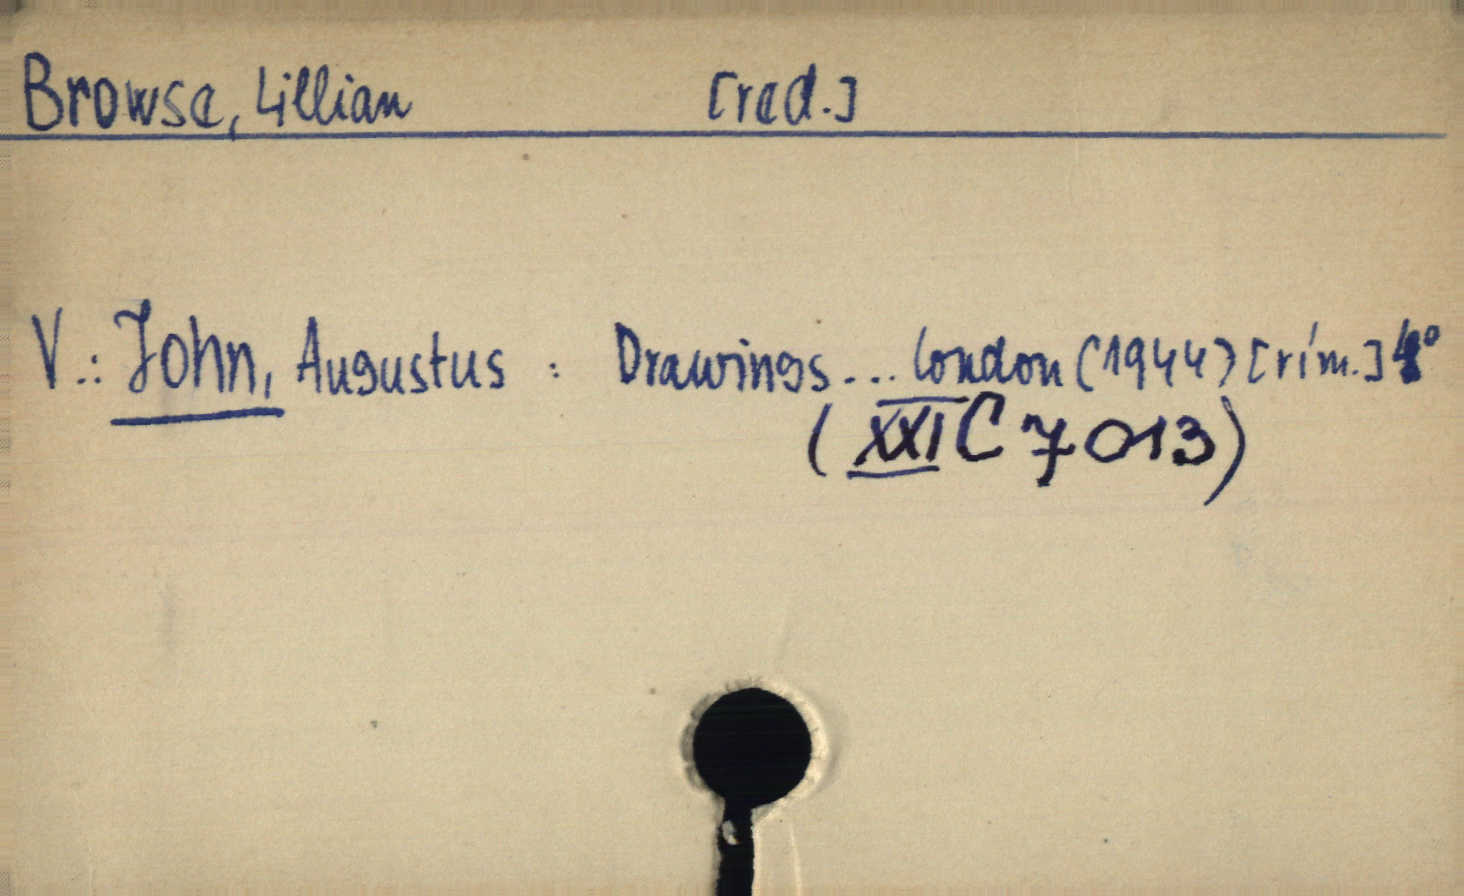 Browse, Lillian [red.]
V.: John, Augustus : Drawings... London (1944) [rím.] 4°
(XXI C 7013)